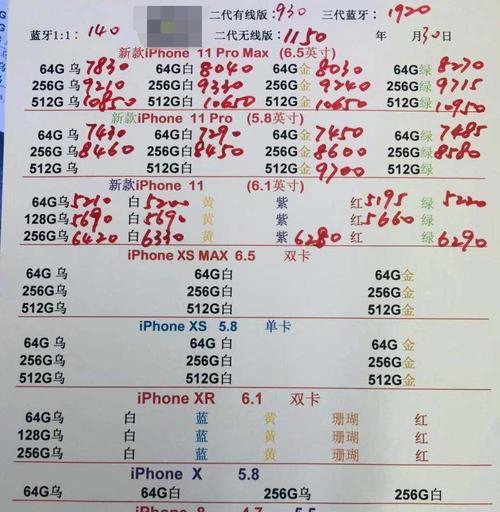 二代有线版:930 三代蓝牙:1920
蓝牙1:1: 140 二代无线版:1150 年 月30日
新款iPhone 11 Pro Max (6.5英寸)
64G乌7830 64G白8040 64G金8030 64G绿8270
256G乌9210 256G白9330 256G金9240 256G绿9715
512G乌10850 512G白10650 512G金10650 512G绿10950
新款iPhone 11 Pro (5.8英寸)
64G乌7430 64G白7290 64G金7450 64G绿7485
256G乌8460 256G白8450 256G金8600 256G绿8580
512G乌 512G白 512G金9700 512G绿
新款iPhone 11 (6.1英寸)
64G乌5210 白5200 黄 紫 红5195 绿5220
128G乌5690 白5690 黄 紫 红5660 绿
256G乌6420 白6330 黄 紫6280 红 绿6290
iPhone XS MAX 6.5 双卡
64G乌 64G白 64G金
256G乌 256G白 256G金
512G乌 512G白 512G金
iPhone XS 5.8 单卡
64G乌 64G白 64G金
256G乌 256G白 256G金
512G乌 512G白 512G金
iPhone XR 6.1 双卡
64G乌 白 蓝 黄 珊瑚 红
128G乌 白 蓝 黄 珊瑚 红
256G乌 白 蓝 黄 珊瑚 红
iPhone X 5.8
64G乌 64G白 256G乌 256G白
iPhone 8 4.7 5.5